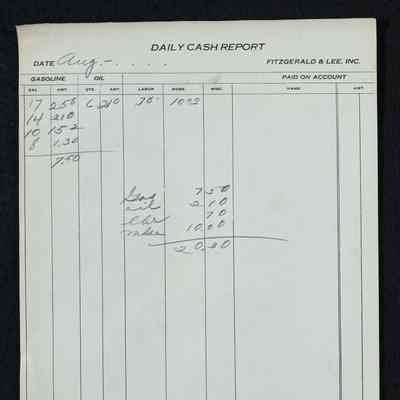 DAILY CASH REPORT
DATE Aug - . . . . FITZGERALD & LEE, INC.
GASOLINE OIL PAID ON ACCOUNT
GAL. AMT. QTS. AMT. LABOR MDSE. MISC. NAME AMT.
17 2.56 6 2.10 70 10.00
14 2.10
10 1.52
8 1.30
7.50
Gas 7.50
oil 2.10
Lbr 70
mdse 10.00
20.20